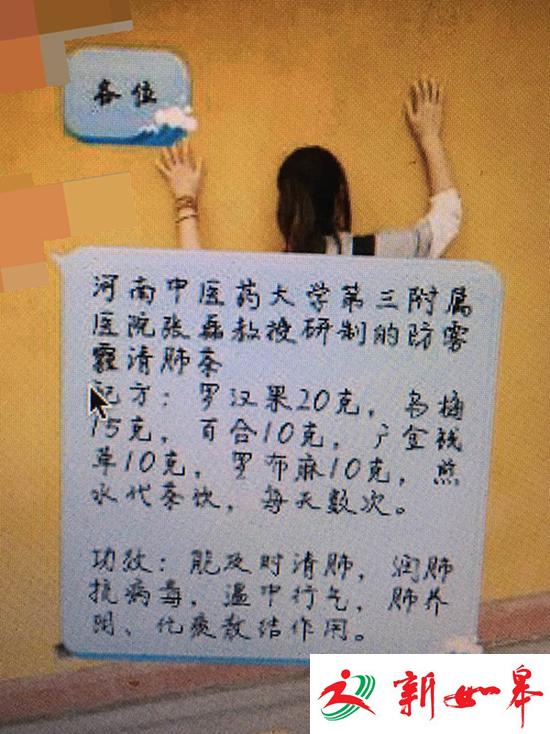 各位
河南中医药大学第三附属
医院张磊教授研制的防雾
霾清肺茶
配方：罗汉果20克，乌梅
15克，百合10克，广金钱
草10克，罗布麻10克，煎
水代茶饮，每天数次。
功效：能及时清肺，润肺
抗病毒，温中行气，肺养
阴、化痰散结作用。
新如皋